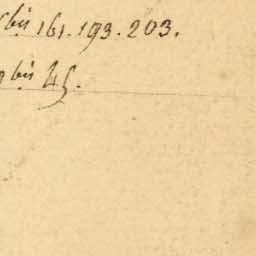 bis 161. 193. 203.
bis 45.